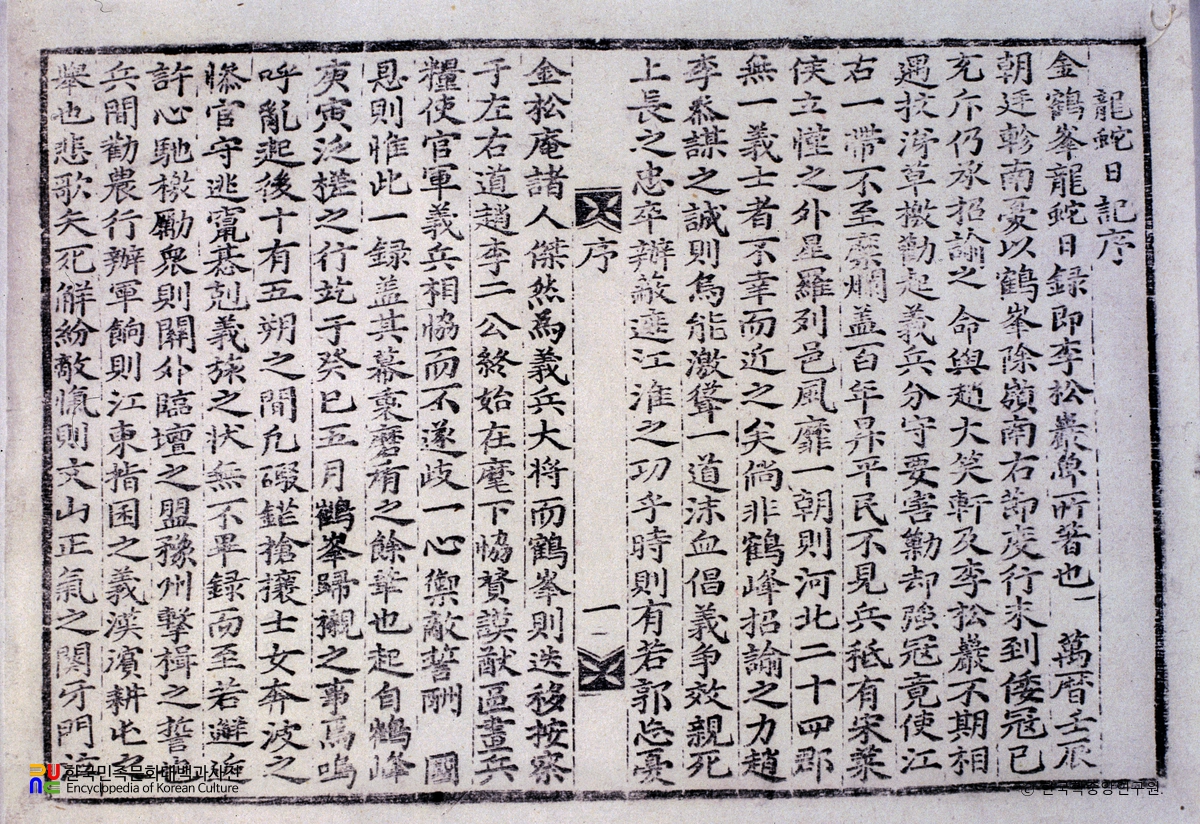 龍蛇日記序
金鶴峯龍蛇日録即李松巖魯所著也 萬曆壬辰
朝廷軫南憂以鶴峯除嶺南右節度行未到倭冦已
充斥仍承招諭之 命與趙大笑軒及李松巖不期相
遇抆涕草檄勸起義兵分守要害勦却強冦竟使江
右一帶不至糜爛盖百年昇平民不見兵秪有宋葉
侠立慬之外星羅列邑風靡一朝則河北二十四郡
無一義士者不幸而近之矣倘非鶴峰招諭之力趙
李叅謀之誠則烏能激聳一道沫血倡義争效親死
上長之忠卒辦蔽遮江淮之功乎時則有若郭忘憂
序
一
金松庵諸人傑然爲義兵大将而鶴峯則迭移按察
于左右道趙李二公終始在麾下協賛謨猷區畫兵
糧使官軍義兵相恊而不遂歧一心禦敵誓酬 國
恩則惟此一録盖其幕橐磨盾之餘葦也起自鶴峰
庚寅泛槎之行訖于癸巳五月鶴峯歸櫬之事爲嗚
呼亂起後十有五朔之間凢磤鎈搶攘士女奔波之
慘官守逃竄碁剋義旅之状無不畢録而至若
許心馳檄勵衆則關外臨壇之盟豫州擊楫之誓
兵間勸農行辦軍餉則江東指囷之義漢濱耕屯之
擧也悲歌矢死觧紛敵愾則文山正氣之閿牙門
한국민족문화대백과사전
Encyclopedia of Korean Culture
© 한국학중앙연구원.